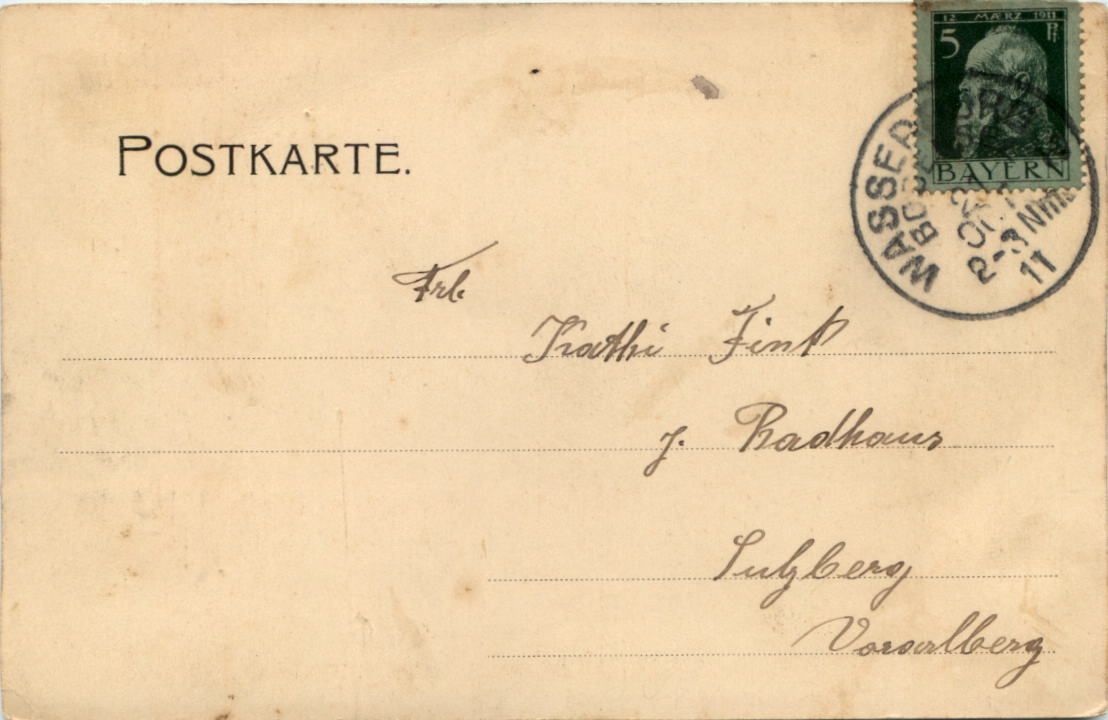 12 MÆRZ 1911
5 Pf
BAYERN
POSTKARTE.
WASSERBURG
BODENSEE
OKT
2-3 Nm
11
Frl.
Kathi Fink
z. Badhaus
Sulzberg
Vorarlberg